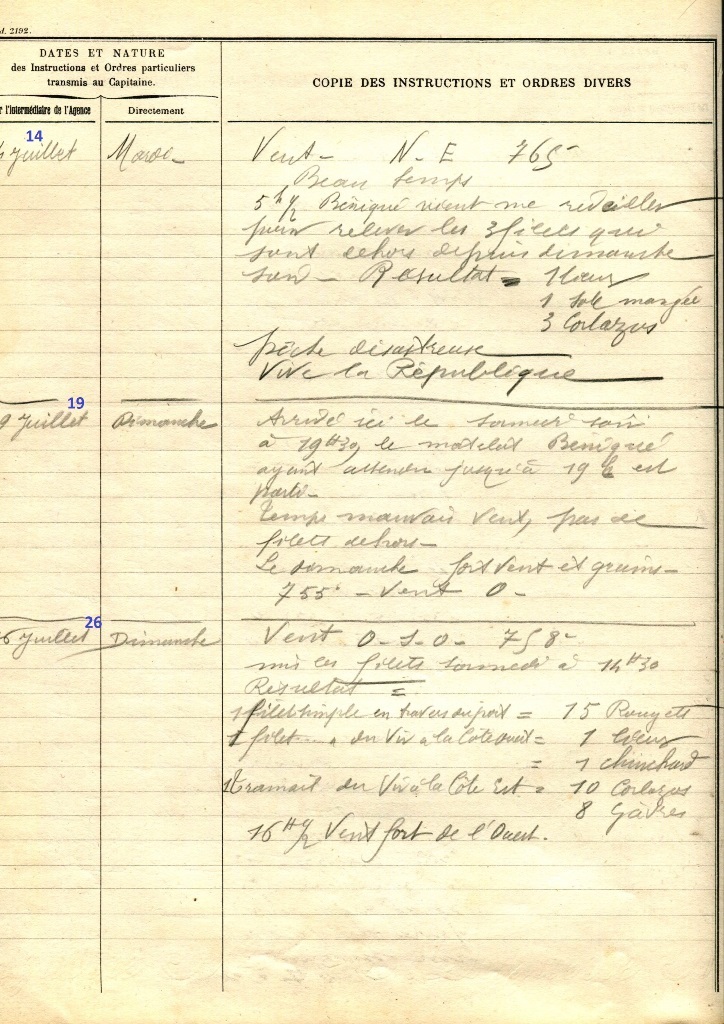 d. 2192.
DATES ET NATURE
des Instructions et Ordres particuliers
transmis au Capitaine.
r l'Intermédiaire de l'Agence
Directement
COPIE DES INSTRUCTIONS ET ORDRES DIVERS
14
Juillet Mardi
Vent - N - E 765
Beau temps
5h 1/2 Béniqué vient me réveiller
pour relever les 3 filets qui
sont dehors depuis dimanche
soir - Résultat =
1 sole mangée
3 Corlazos
pêche désastreuse
Vive la République
19
9 Juillet Dimanche
Arrivé ici le samedi soir
à 19H30, le matelot Béniqué
ayant attendu jusqu'à 19h est
parti -
temps mauvais vent, pas de
filets dehors -
Le dimanche fort vent et grains -
755 - Vent O -
26
6 Juillet Dimanche
Vent O - S - O - 758 -
mis les filets samedi à 14H30
Résultat =
1 filet simple en travers du port = 15 Rougets
1 filet " du Viv à la Côte Ouest = 1
= 1 chinchard
1 tramail du Viv à la Côte Est = 10 Corlazos
8
16H 1/2 Vent fort de l'Ouest.